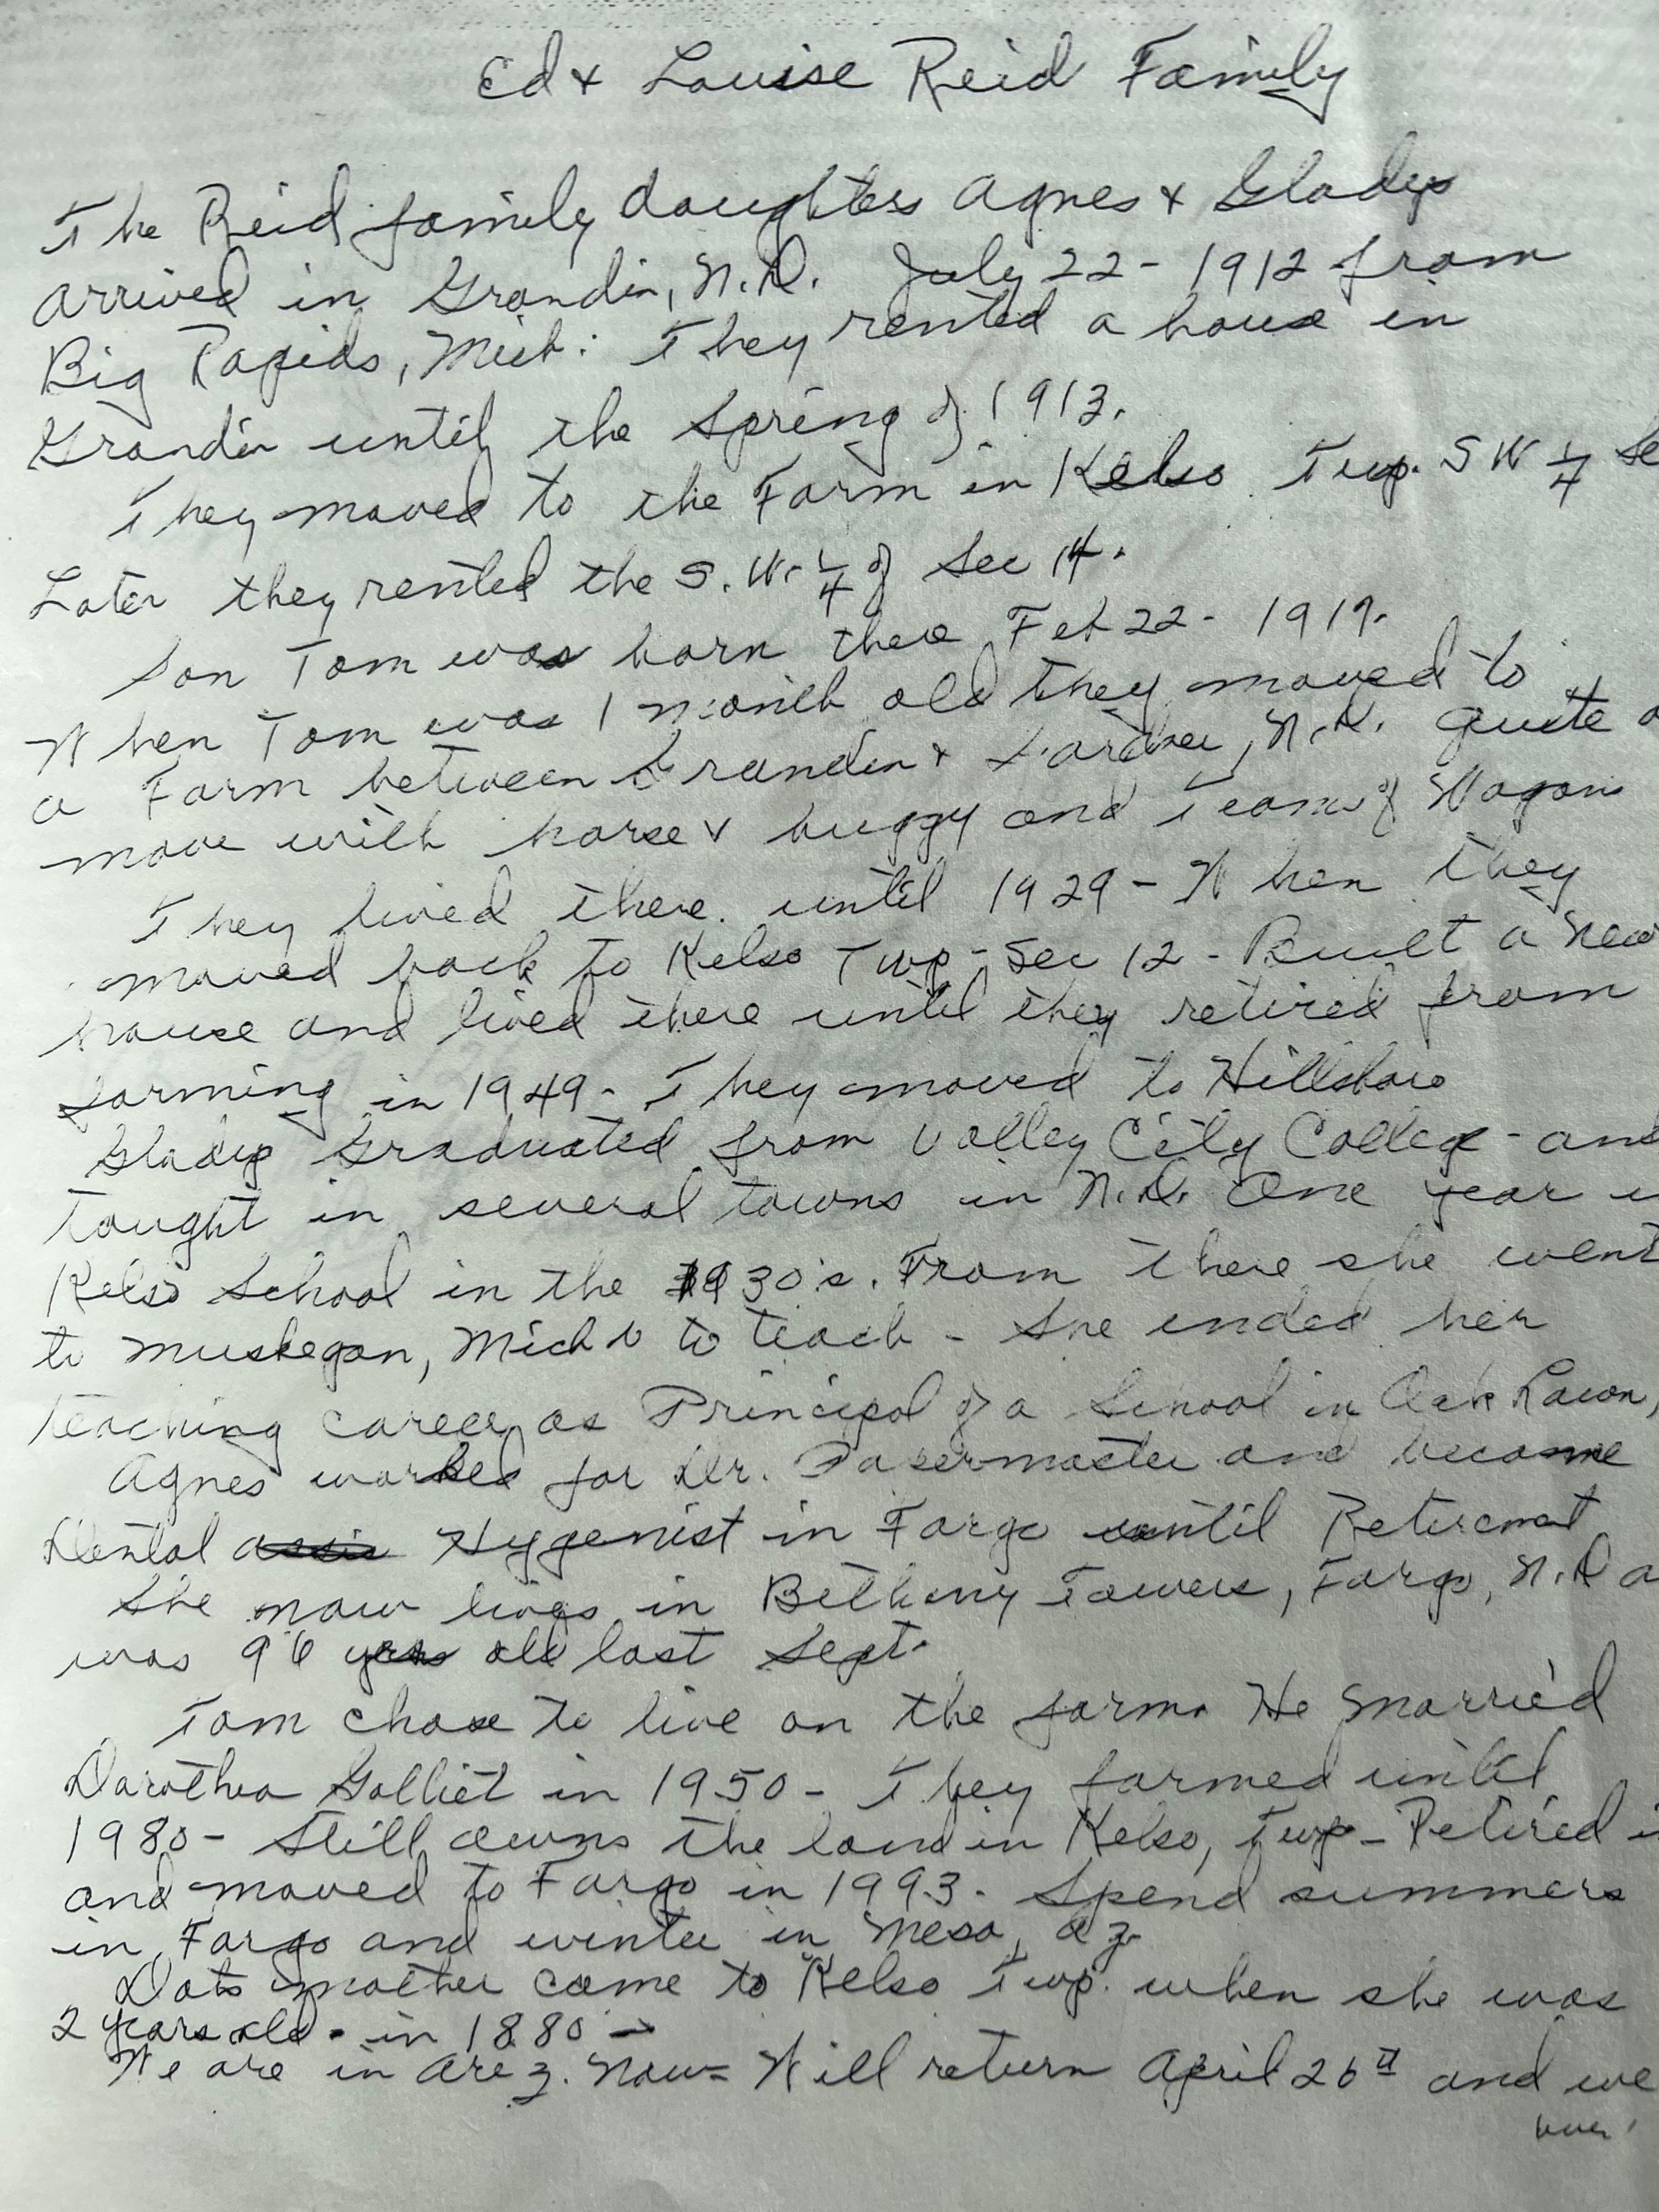 Ed & Louise Reid Family
The Reid family daughters Agnes & Gladys
arrived in Grandin, N.D. July 22 - 1912 from
Big Rapids, Mich. They rented a house in
Grandin until the Spring of 1913.
They moved to the Farm in Kelso Twp. SW 1/4 Se
Later they rented the S.W. 1/4 of Sec 14.
Son Tom was born there Feb 22 - 1919.
When Tom was 1 month old they moved to
a Farm between Grandin & Gardner, N.D. quite a
move with horse & buggy and Team of Wagons
They lived there until 1929 - When they
moved back to Kelso Twp - Sec 12 - Built a new
house and lived there until they retired from
farming in 1949 - They moved to Hillsboro
Gladys Graduated from Valley City College - and
tought in several towns in N.D. One year
Kelso School in the 1930's. From there she went
to Muskegon, Mich to teach - She ended her
teaching career as Principal of a School in Oak Lawn,
Agnes worked for Dr. and became
Dental assis Hygenist in Fargo until Retirement
She now lives in Bethany Towers, Fargo, N.D a
was 96 years old last Sept.
Tom chose to live on the farm. He married
Dorothea Golliet in 1950 - They farmed until
1980 - Still owns the land in Kelso, Twp - Retired i
and moved to Fargo in 1993. Spend summers
in Fargo and winter in Mesa, Az.
Dots mother came to Kelso Twp. when she was
2 years old - in 1880 -
We are in Arez. now - Will return April 26th and we
over